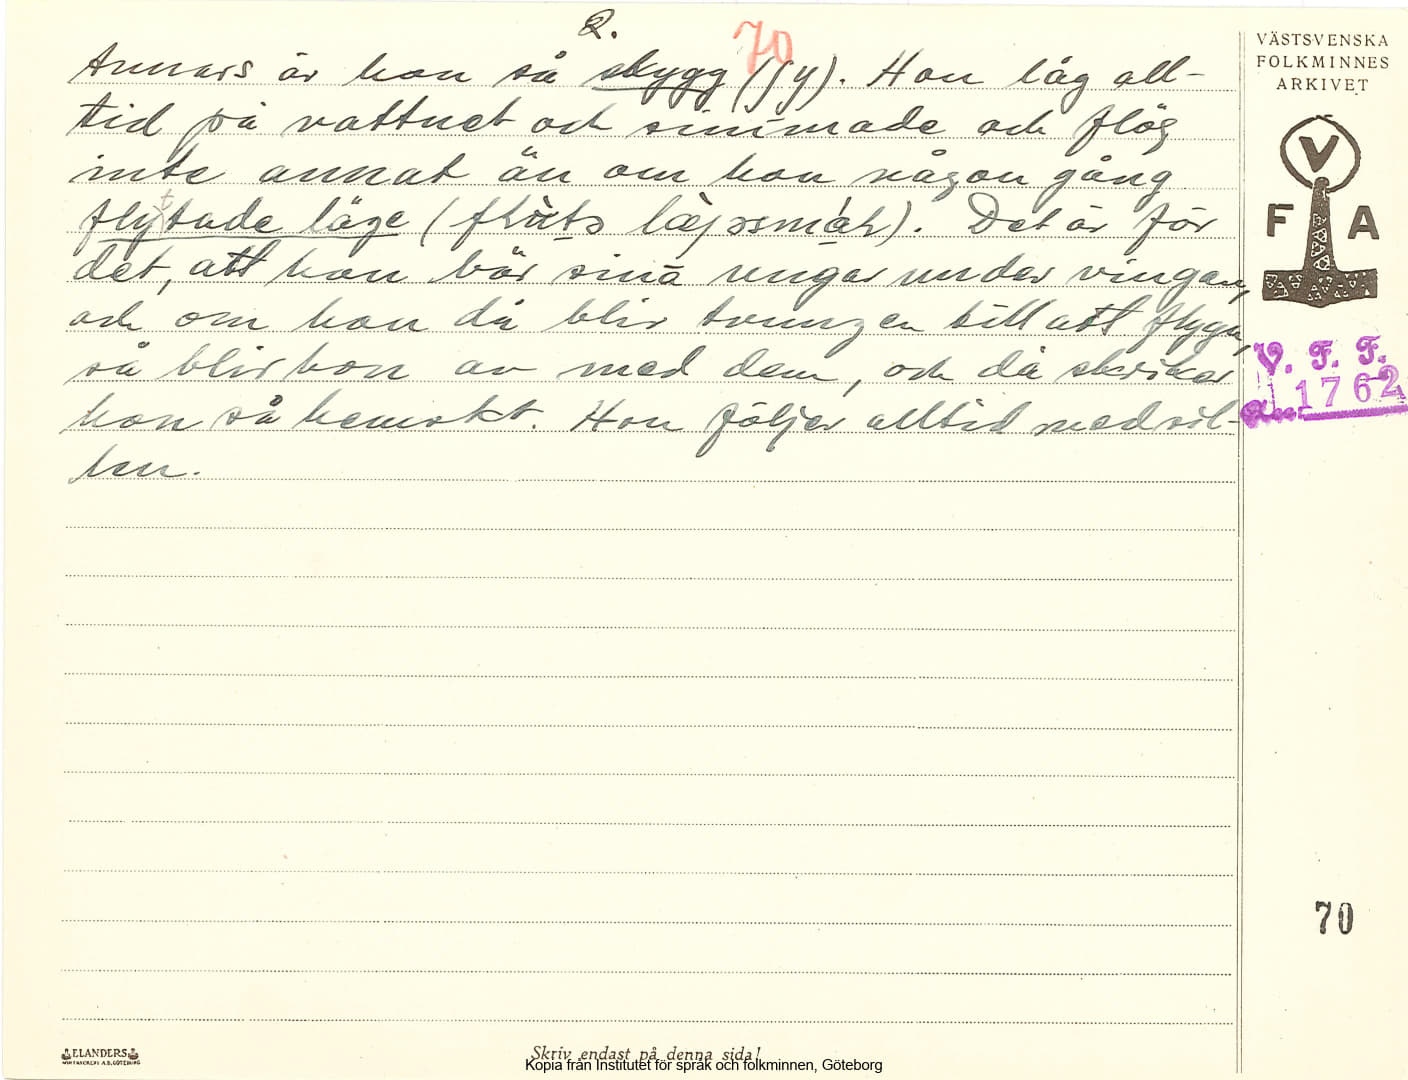 2.
70
Annars är hon så skygg (ſy). Hon låg all-
tid på vattnet och simmade och flög
inte annat än om hon någon gång
flyttade läge ( ). Det är för
det, att hon bär sina ungar under vingarna,
och om hon då blir tvungen till att flyga,
så blir hon av med dem, och då skriker
hon så hemskt. Hon följer alltid med sil-
len.
VÄSTSVENSKA
FOLKMINNES
ARKIVET
V
F A
V. F. F.
1762
70
ELANDERS
Skriv endast på denna sida!
Kopia från Institutet för språk och folkminnen, Göteborg